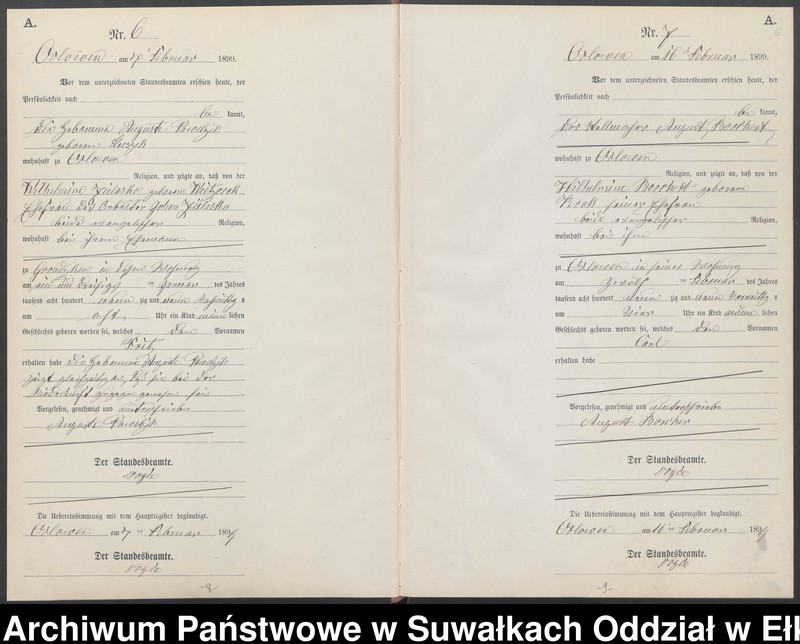 A.
Nr. 6
Orlowen am 7ᵗ Februar 1899.
Vor dem unterzeichneten Standesbeamten erschien heute, der
Persönlichkeit nach
be kannt,
die Hebamme Auguste
geborene
wohnhaft zu Orlowen
Religion, und zeigte an, daß von der
Wilhelmine geborene
Ehefrau des Arbeiter
beide evangelischer Religion,
wohnhaft bei ihrem Ehemann
zu in dessen Wohnung
am ein und dreißigsten Januar des Jahres
tausend acht hundert neun zig und neun Nachmittags
um acht Uhr ein Kind männlichen
Geschlechts geboren worden sei, welches den Vornamen
Fritz
erhalten habe. Die Hebamme Auguste
zeigt an, daß sie bei der
Niederkunft zugegen gewesen sei
Vorgelesen, genehmigt und unterschrieben
Auguste
Der Standesbeamte.
Vogde
Die Uebereinstimmung mit dem Hauptregister beglaubigt.
Orlowen am 7 ten Februar 1899
Der Standesbeamte.
Vogde
-8-
A.
Nr. 7
Orlowen am 16 Februar 1899.
Vor dem unterzeichneten Standesbeamten erschien heute, der
Persönlichkeit nach
be kannt,
der August Borchert
wohnhaft zu Orlowen
Religion, und zeigte an, daß von der
Wilhelmine Borchert geborene
seiner Ehefrau
beide evangelischer Religion,
wohnhaft bei ihm
zu Orlowen in seiner Wohnung
am zwölf ten Februar des Jahres
tausend acht hundert neun zig und neun Vormittags
um vier Uhr ein Kind männlichen
Geschlechts geboren worden sei, welches den Vornamen
Carl
erhalten habe
Vorgelesen, genehmigt und unterschrieben
August
Der Standesbeamte.
Vogde
Die Uebereinstimmung mit dem Hauptregister beglaubigt.
Orlowen am 16 ten Februar 1899
Der Standesbeamte.
Vogde
-9-
Archiwum Państwowe w Suwałkach Oddział w Eł